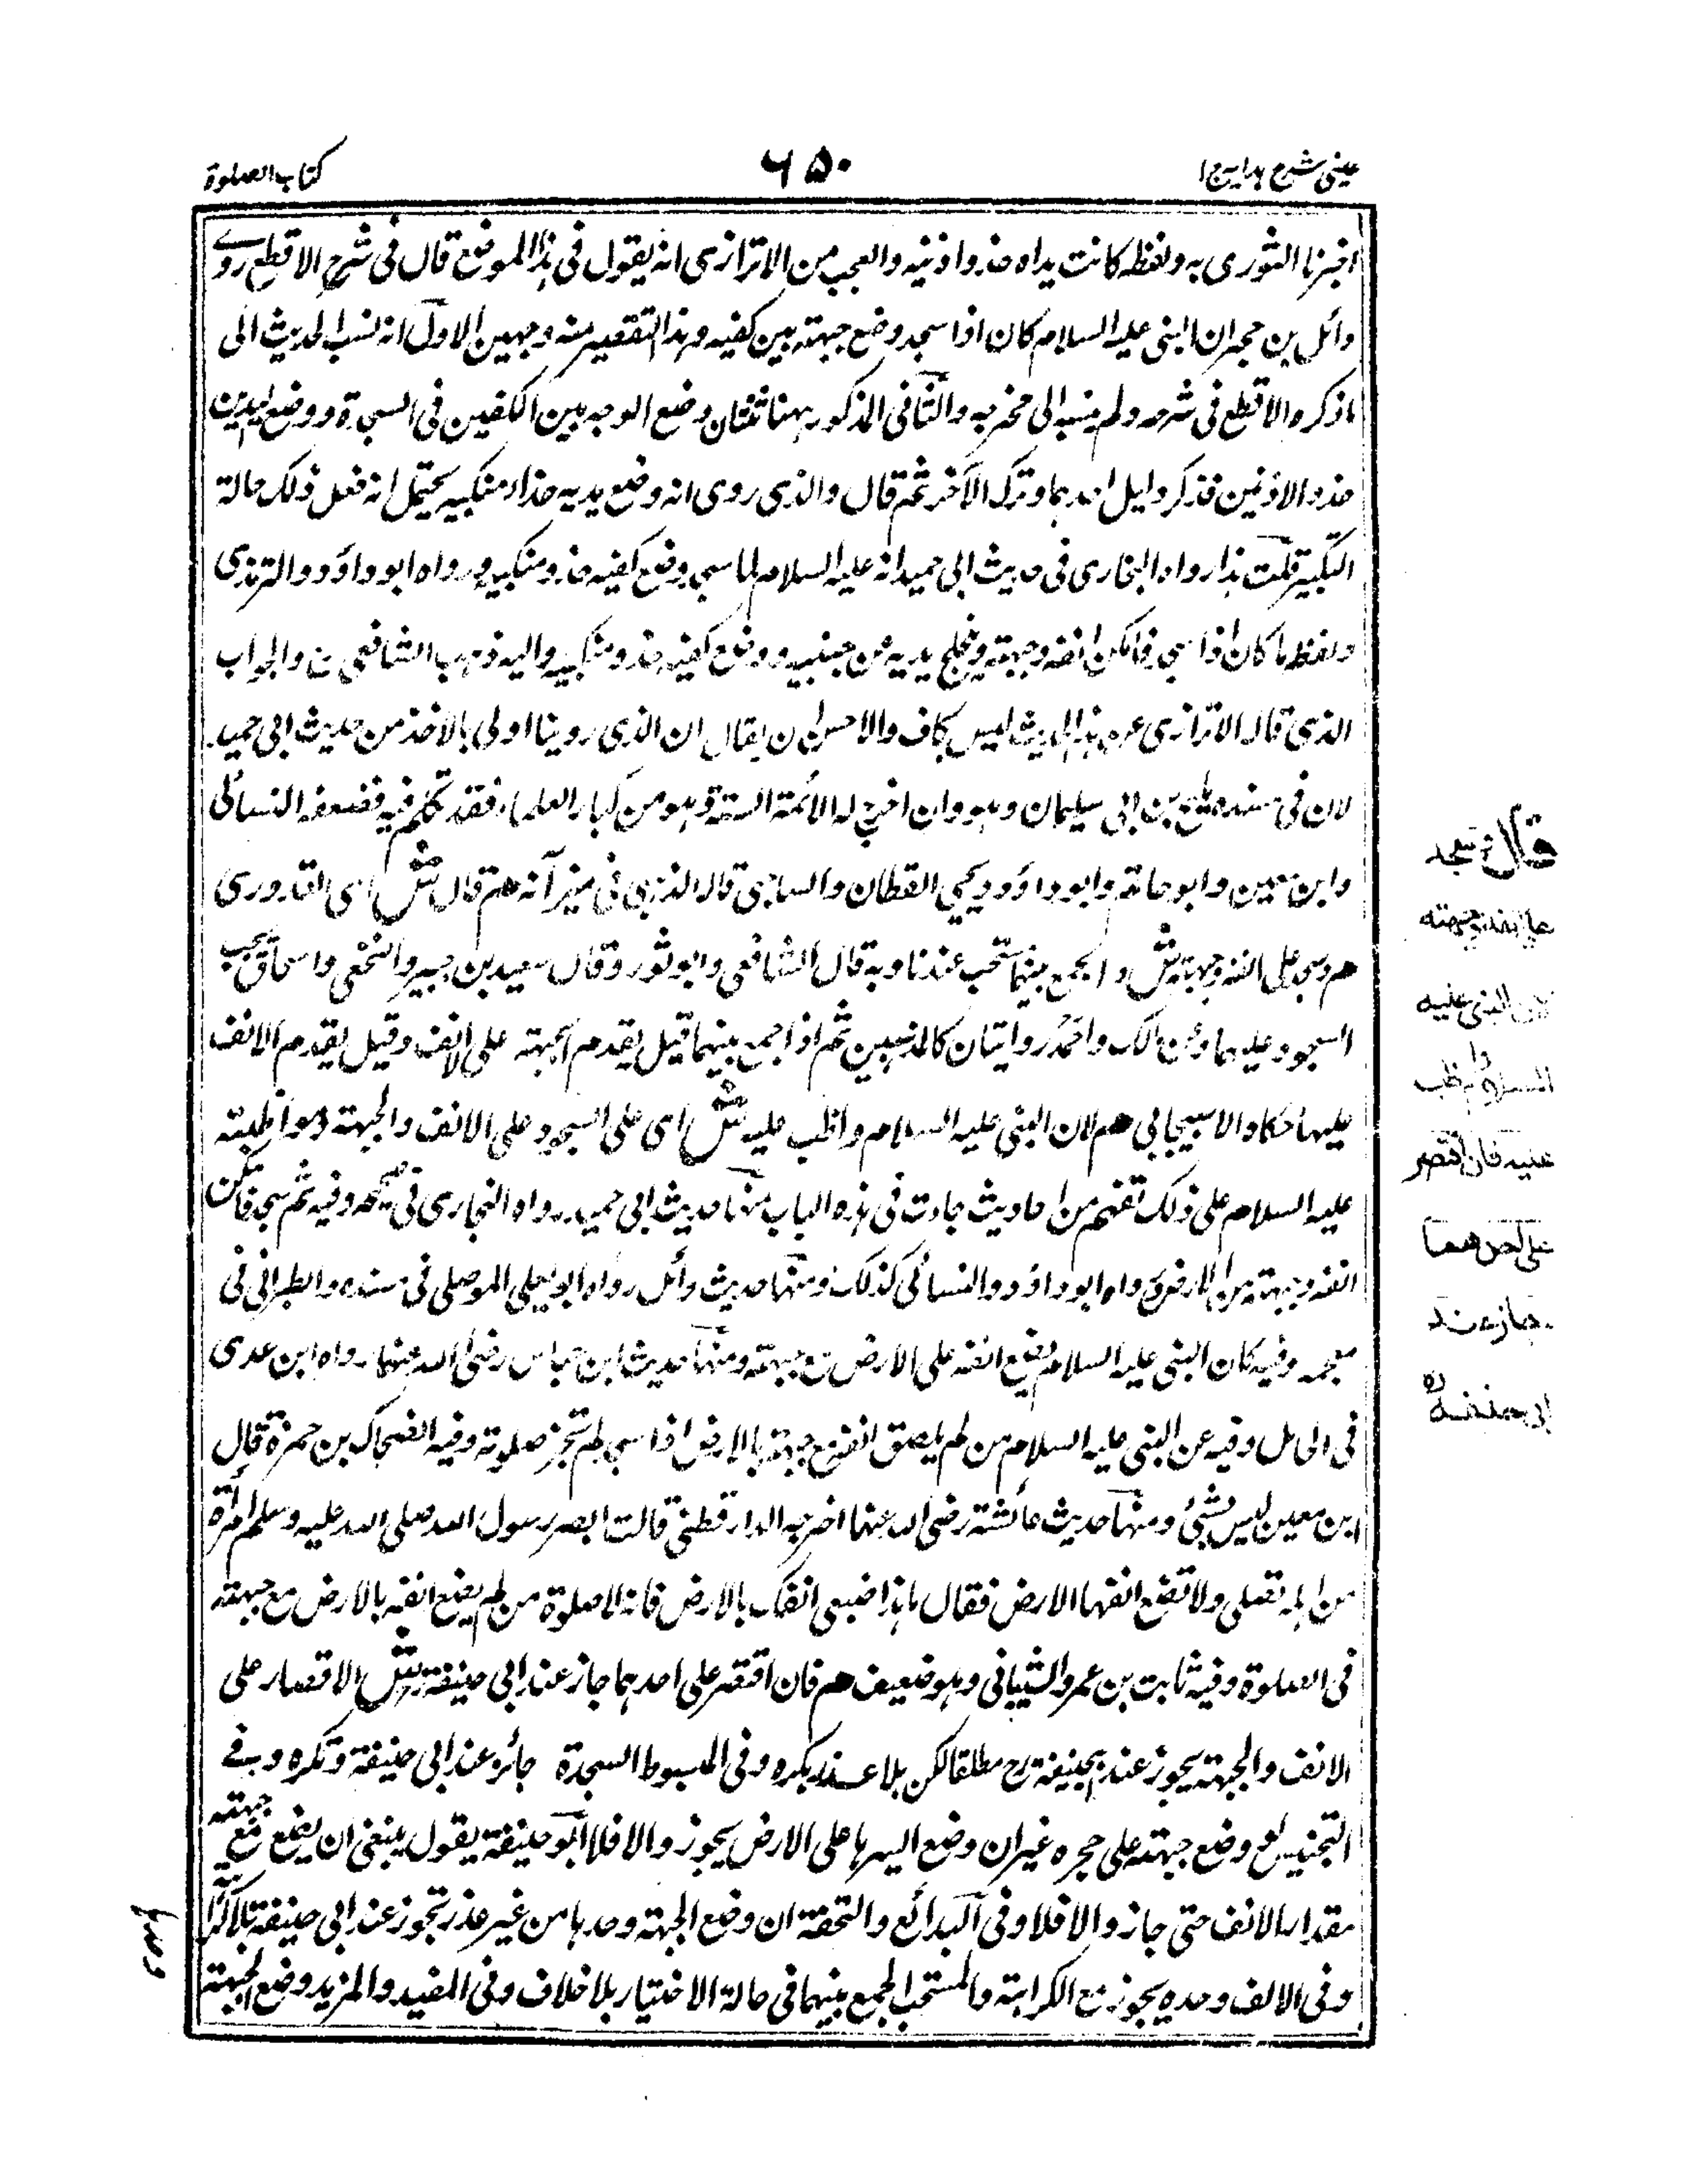 عینی شرح ہدایہ ج ا
۶۵۰
کتاب الصلوة
اخبرنا الثوری به ولفظه كانت يداه حذو اذنيه والعجب من الاترازی انه يقول فی هذا الموضع قال فی شرح الاقطع روے
وائل بن حجر ان النبی عليه السلام كان اذا سجد وضع جبهته بين كفيه وهذا التقصير منه وجهين الاول انه نسب الحديث الی
ما ذكره الاقطع فی شرحه ولم ينسبه الی مخرجه والثانی المذكور ههنا شيئان وضع الوجه بين الكفين فی السجدة ووضع اليدين
حذو الاذنين فذكر دليل احدهما وترك الآخر ثم قال والذی روی انه وضع يديه حذاء منكبيه يحتمل انه فعل ذلك حالة
التكبير قلت هذا رواه البخاری فی حديث ابی حميد انه عليه السلام لما سجد وضع كفيه حذو منكبيه ورواه ابو داؤد والترمذی
ولفظهما كان اذا سجد فامكن انفه وجبهته ونحی يديه عن جنبيه ووضع كفيه حذو منكبيه واليه ذهب الشافعی رح والجواب
الذی قاله الاترازی عن هذا الحديث ليس بكاف والاحسن ان يقال ان الذی روينا اولی بالاخذ من حديث ابی حميد
لان فی سنده فليح بن ابی سليمان وهو وان اخرج له الائمة الستة وهو من كبار العلماء فقد تكلم فيه فضعفه النسائی
وابن معين وابو حاتم وابو داؤد ويحيی القطان والساجی قاله الذهبی فی ميزانه هم قال ش ای القدوری
هم وسجد علی انفه وجبهته ش والجمع بينهما مستحب عندنا وبه قال الشافعی وابو ثور وقال سعيد بن جبير والنخعی واسحاق يجب
السجود عليهما وعن مالك واحمد روايتان كالمذهبين ثم اذا جمع بينهما قيل يقدم الجبهة علی الانف وقيل يقدم الانف
عليها حكاه الاسبيجابی هم لان النبی عليه السلام واظب عليه ش ای علی السجود علی الانف والجبهة ومواظبته
عليه السلام علی ذلك تفهم من احاديث جاءت فی هذه الباب منها حديث ابی حميد رواه البخاری فی صحيحه وفيه ثم سجد فامكن
انفه وجبهته من الارض ورواه ابو داؤد والنسائی كذلك ومنها حديث وائل رواه ابو يعلی الموصلی فی مسنده والطبرانی فی
معجمه وفيه كان النبی عليه السلام يضع انفه علی الارض مع جبهته ومنها حديث ابن عباس رضی الله عنهما رواه ابن عدی
فی الكامل وفيه عن النبی عليه السلام من لم يلصق انفه مع جبهته بالارض اذا سجد لم تجز صلوته وفيه الضحاك بن حمزة قال
ابن معين ليس بشئ ومنها حديث عائشة رضی الله عنها اخرجه الدارقطنی قالت ابصر رسول الله صلی الله عليه وسلم امرأة
من اهله تصلی ولا تضع انفها الارض فقال يا هذه ضعی انفك بالارض فانه لا صلوة من لم يضع انفه بالارض مع جبهته
فی الصلوة وفيه ثابت بن عمرو الشيبانی وهو ضعيف هم فان اقتصر علی احدهما جاز عند ابی حنيفة رح ش الاقتصار علی
الانف والجبهة يجوز عند ابی حنيفة رح مطلقا لكن بلا عذر يكره وفی المبسوط السجدة جائزة عند ابی حنيفة وتكره وبه فے
التجنيس لو وضع جبهته علی حجره غير ان وضع اليسرها علی الارض يجوز والا فلا ابو حنيفة يقول ينبغی ان يضع مع جبهته
مقدار الانف حتی جاز والا فلا وفی البدائع والتحفة ان وضع الجبهة وحدها من غير عذر تجوز عند ابی حنيفة بلا كراهة
وفی الانف وحده يجوز مع الكراهة والمستحب الجمع بينهما فی حالة الاختيار بلا خلاف وفی المفيد والمزيد وضع الجبهة
قال وسجد
علی انفه وجبهته
لان النبی عليه
السلام واظب
عليه فان اقتصر
علی احدهما
جاز عند
ابی حنيفة رح